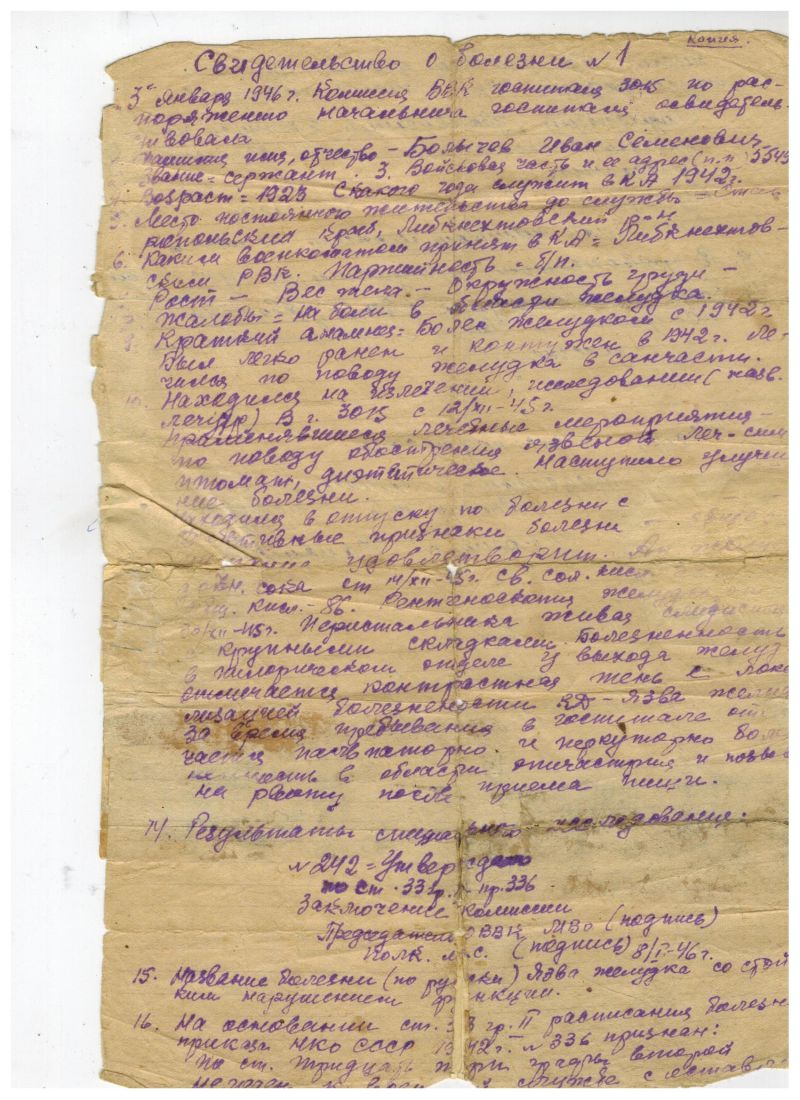 копия.
Свидетельство о болезни № 1
3го января 1946 г. Комиссия ВВК госпиталя ЗОК по рас-
поряжению начальника госпиталя освидетель-
ствовала
Фамилия имя, отчество – Болычев Иван Семенович
Звание = сержант. 3. Войсковая часть и ее адрес (п.п 5543
Возраст = 1923 С какого года служит в КА 1942 г.
5. Место постоянного жительства до службы – Став
ропольский край, Либкнехтовский р-н
6. Каким военкоматом принят в КА = Либкнехтов-
ским РВК. Партийность – б/п.
Рост – Вес тела. – Окружность груди –
Жалобы = на боли в области желудка.
8. Краткий анамнез = Болен желудком с 1942 г
Был легко ранен и контужен в 1942 г. Ле-
чился по поводу желудка в санчасти.
10. Находился на излечении, исследовании (назв.
леч. ) В г. ЗОК с 12/XII-45 г.
Применявшиеся лечебные мероприятия –
по поводу обострения язвенной леч-сим
птомат, диэтетическое. Наступило улучше
ние болезни.
находился в отпуску по болезни с
признаки болезни
удовлетворит.
сока от 14/XII-45 г. св. сол. кисл
кисл. – 86. Рентгеноскопия желудка от
/XII-45 г. Перистальтика живая
с крупными складками. Болезненность
в пилорическом отделе у выхода желуд
отмечается контрастная тень с лока
лизацией болезненности КД – Язва желуд
За время пребывания в госпитале от
чается пальпаторно и перкуторно боле
в области эпигастрия и позы
на рвоту после приема пищи.
14. Результаты специальных исследования.
№ 242 = Утвержд
по ст. 33 гр. пр. 336
Заключение комиссии
Председатель ОВВК МВО (подпись)
Полк. м.с. (подпись) 8/I-46 г.
15. Название болезни (по русски) Язва желудка со стой
ким нарушением функции.
16. На основании ст. 33 гр. II расписания болезн
приказа НКО СССР 1942 г. № 336 признан:
По ст. тридцать три графы второй
службе с остав